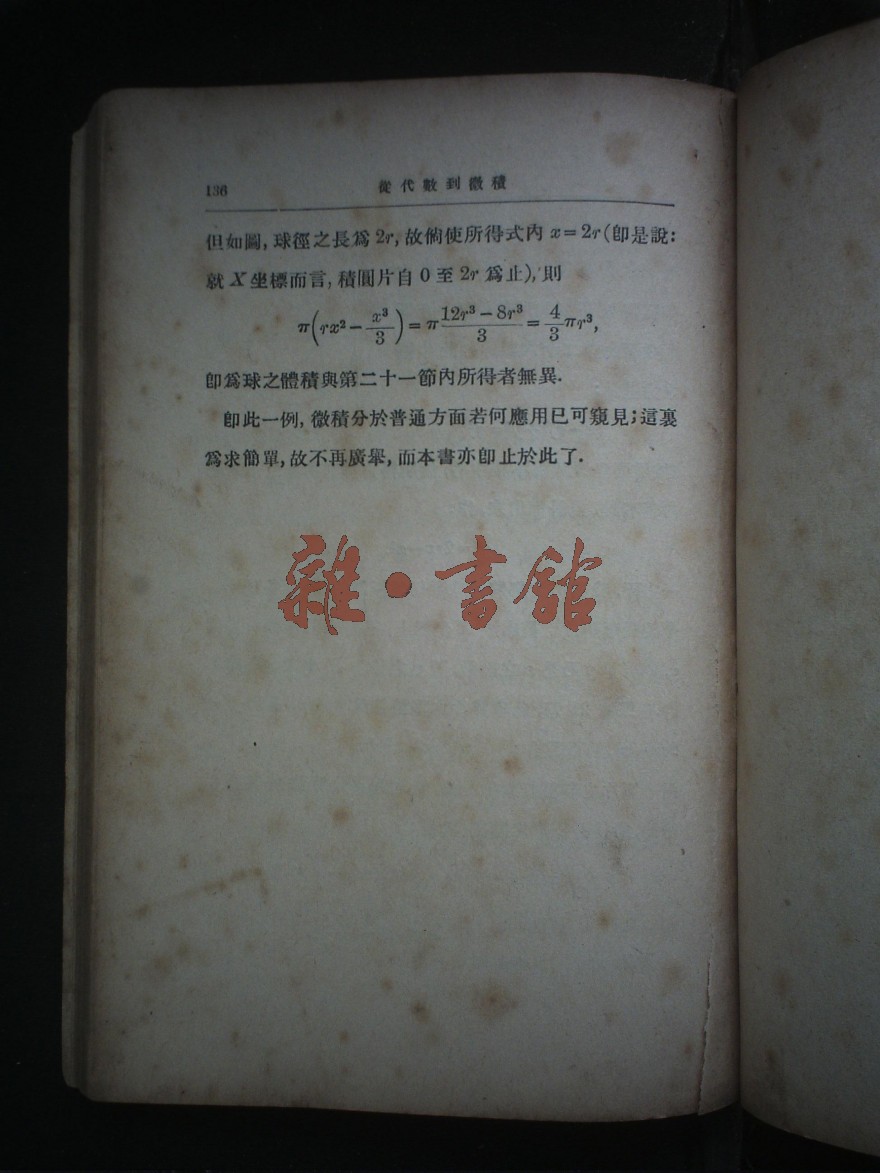 136 從代數到微積
但如圖,球徑之長爲 2r,故倘使所得式內 x = 2r (卽是說:
就 X 坐標而言,積圓片自 0 至 2r 爲止),則
π(rx² − x³/3) = π 12r³ − 8r³/3 = 4/3 πr³,
卽爲球之體積與第二十一節內所得者無異.
卽此一例,微積分於普通方面若何應用已可窺見;這裏
爲求簡單,故不再廣舉,而本書亦卽止於此了.
雜·書館